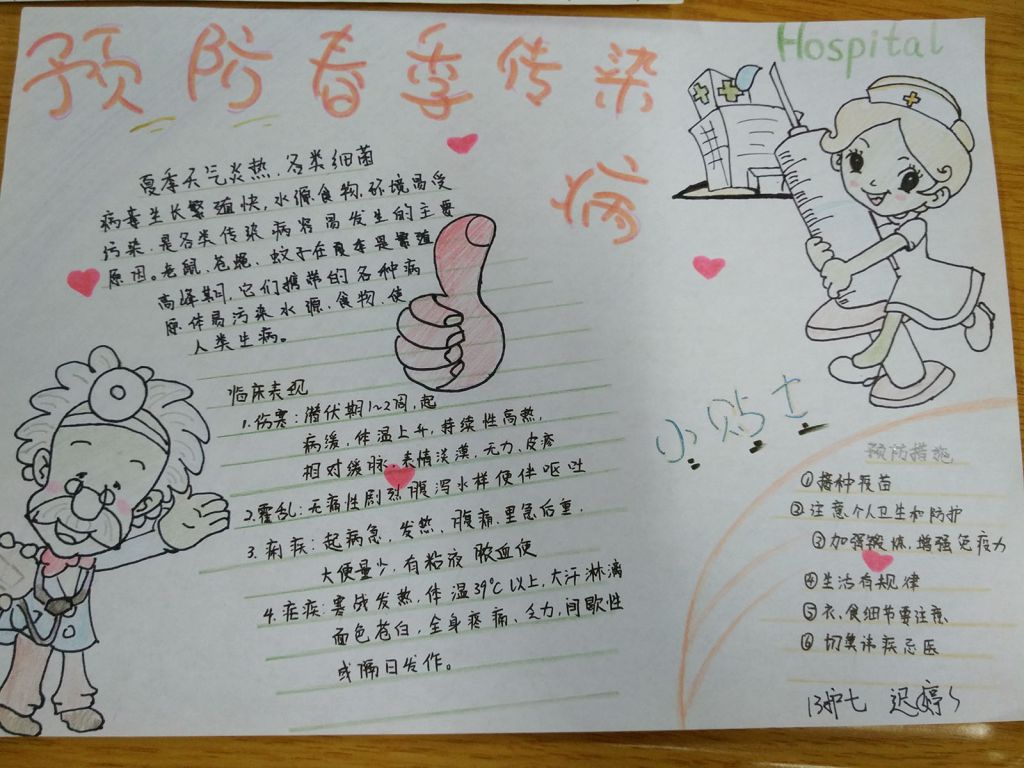 预防春季传染
病
Hospital
夏季天气炎热,各类细菌
病毒生长繁殖快,水源食物,环境易受
污染,是各类传染病容易发生的主要
原因。老鼠,苍蝇,蚊子在夏季是繁殖
高峰期间,它们携带的各种病
原体易污染水源,食物,使
人类生病。
临床表现
1.伤寒:潜伏期1~2周,起
病缓,体温上升,持续性高热,
相对缓脉,表情淡漠,无力,皮疹
2.霍乱:无痛性剧烈腹泻水样便伴呕吐
3.痢疾:起病急,发热,腹痛,里急后重,
大便量少,有粘液脓血便
4.疟疾:寒战发热,体温39℃以上,大汗淋漓
面色苍白,全身疼痛,乏力,间歇性
或隔日发作。
小贴士
预防措施
①接种疫苗
②注意个人卫生和防护
③加强锻炼,增强免疫力
④生活有规律
⑤衣,食细节要注意
⑥切莫讳疾忌医
13护七 迟婷